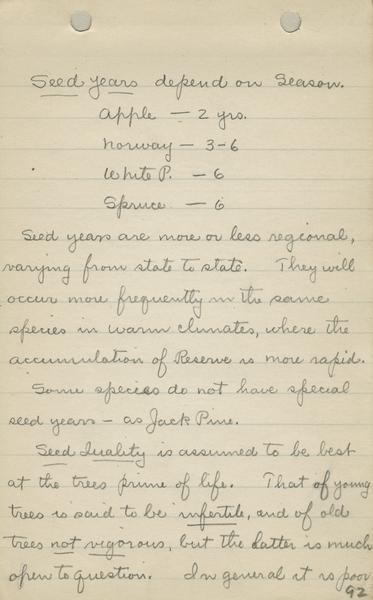 Seed years depend on Season.
Apple — 2 yrs.
Norway — 3-6
White P. — 6
Spruce — 6
Seed years are more or less regional,
varying from state to state. They will
occur more frequently in the same
species in warm climates, where the
accumulation of Reserve is more rapid.
Some species do not have special
seed years — as Jack Pine.
Seed Quality is assumed to be best
at the trees prime of life. That of young
trees is said to be infertile, and of old
trees not vigorous, but the latter is much
open to question. In general it is poor
92